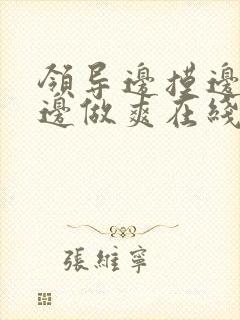 領导邊摸邊
邊做爽在綫
張維寧